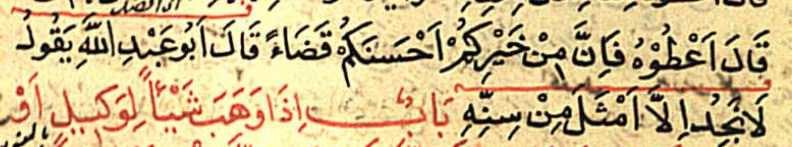 قَالَ اَعْطُوْهُ فَاِنَّ مِنْ خَيْرِكُمْ اَحْسَنَكُمْ قَضَاءً قَالَ اَبُو عَبْدِ اللّٰهِ يَقُولُ
لَا نَجِدُ اِلَّا اَمْثَلَ مِنْ سِنِّهِ بَابُ اِذَا وَهَبَ شَيْئاً لِوَكِيلٍ اَوْ